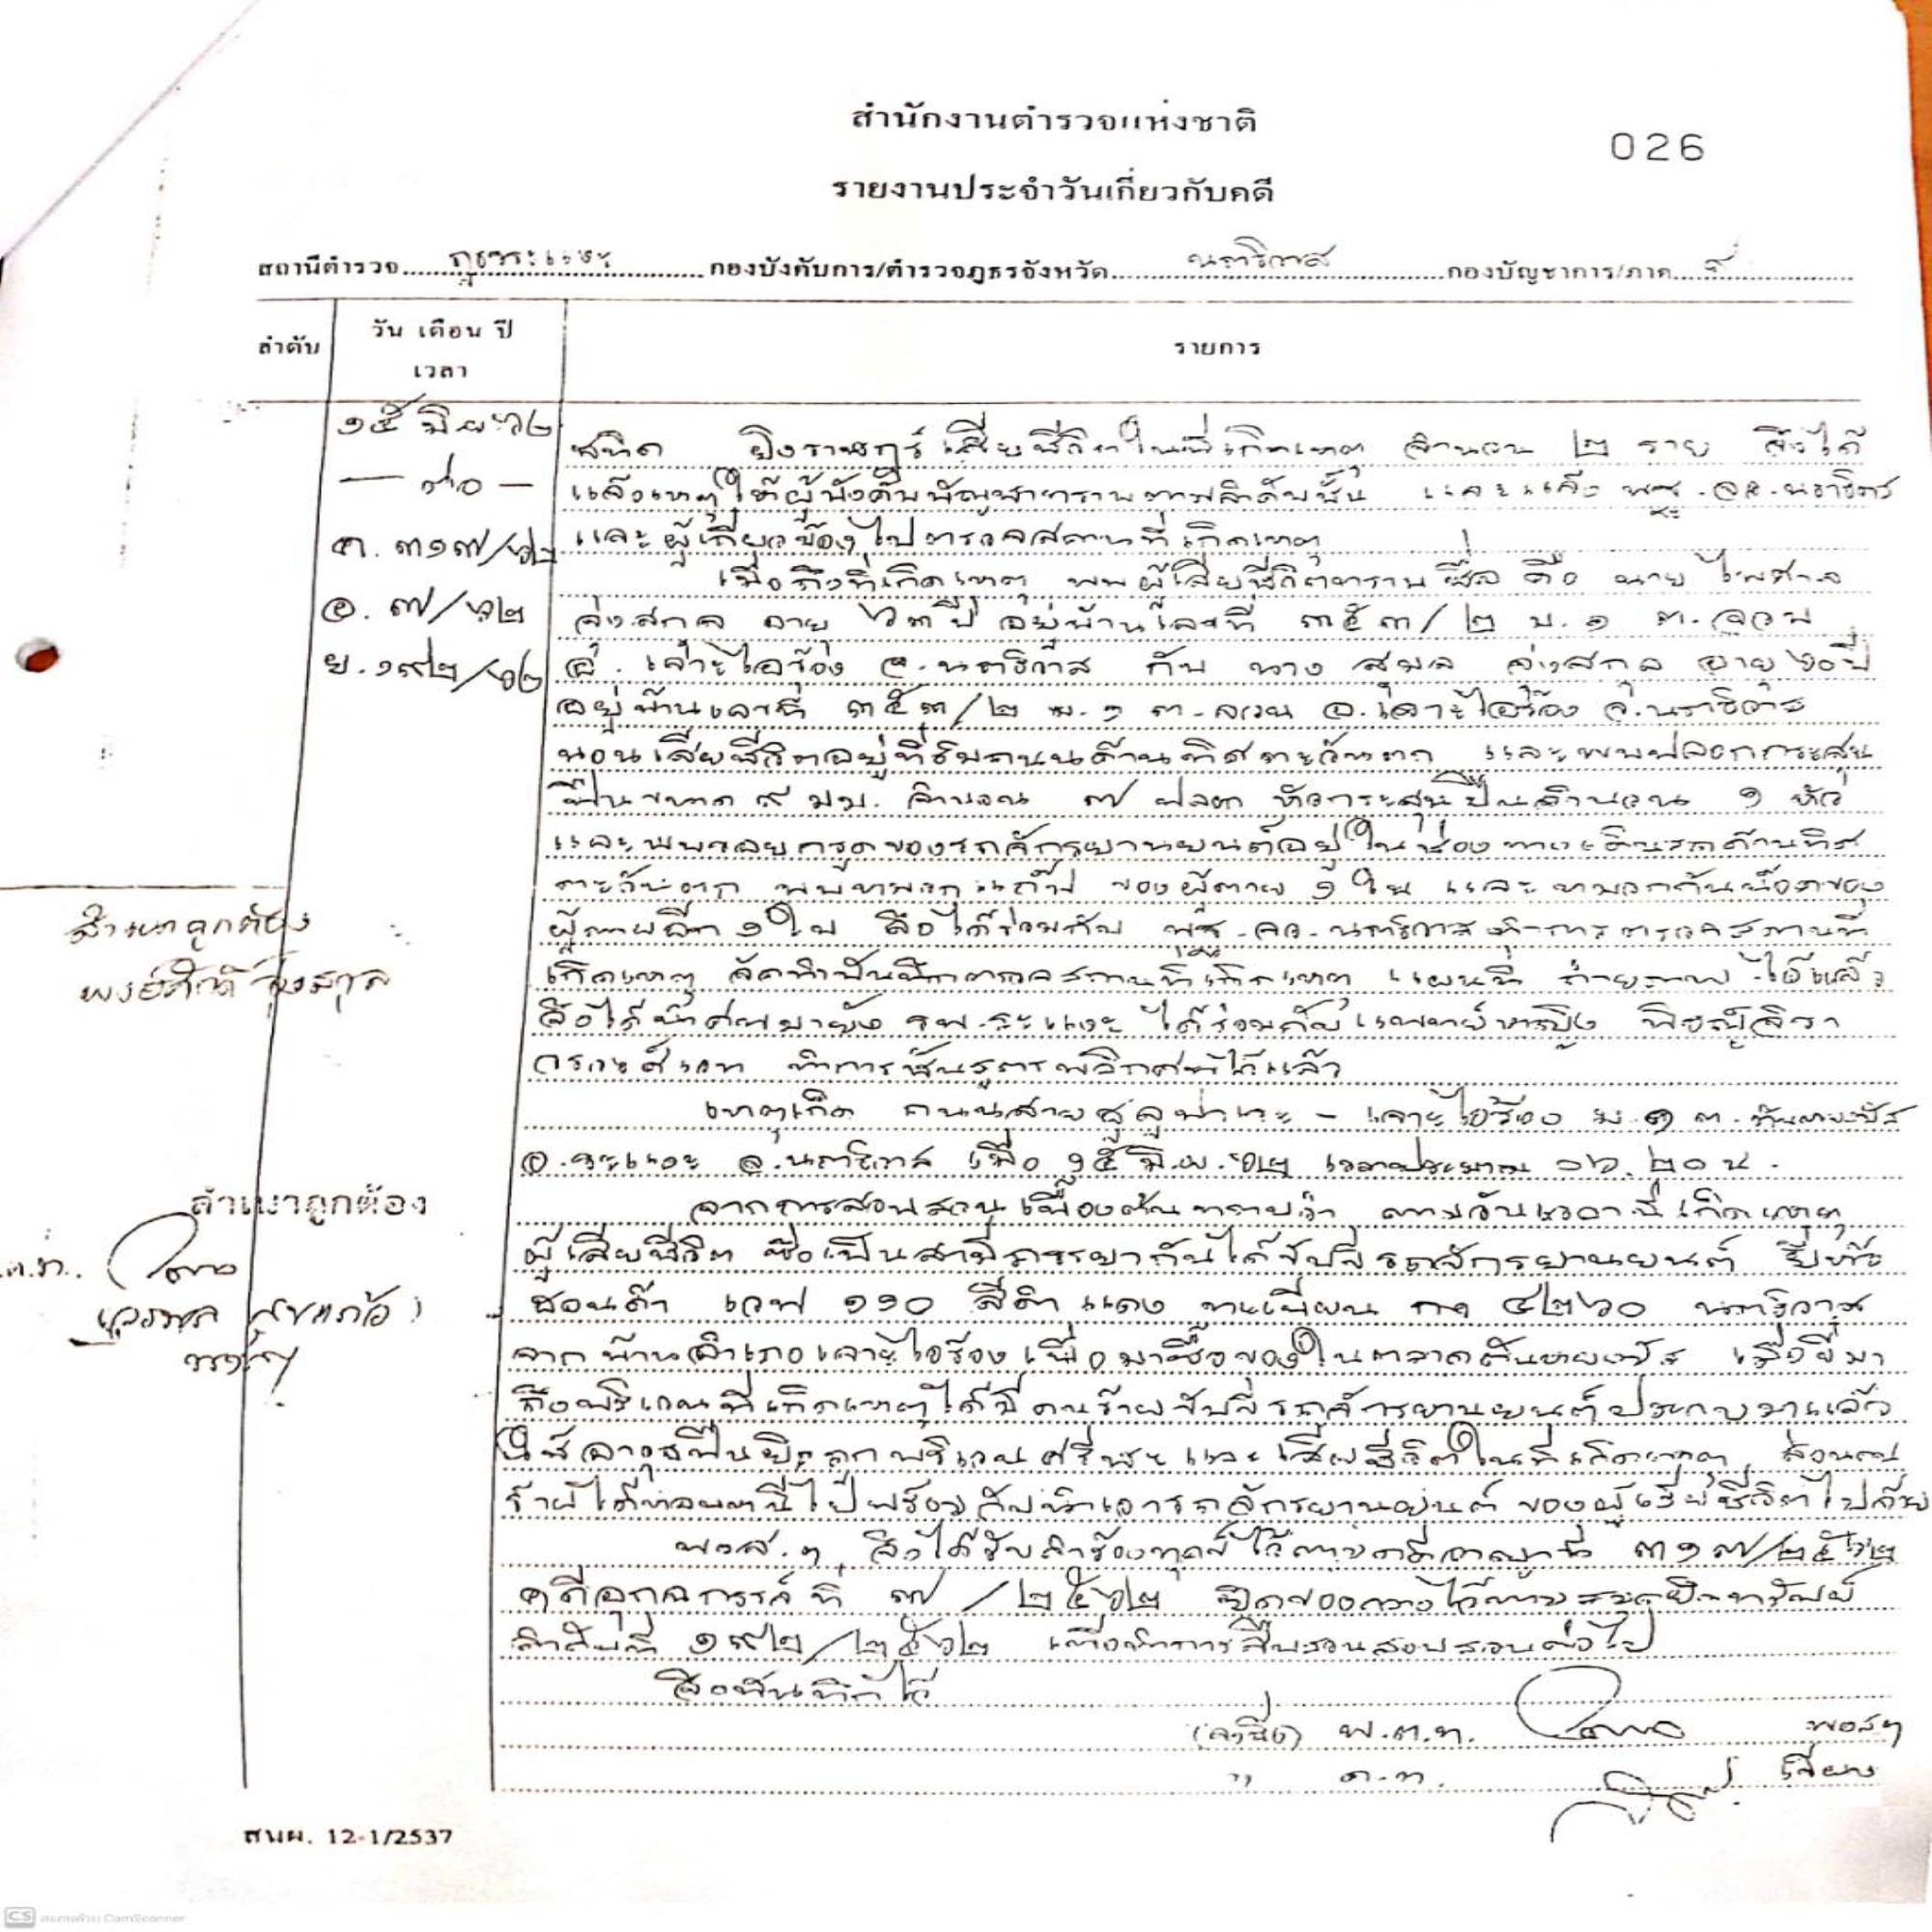 สำนักงานตำรวจแห่งชาติ
026
รายงานประจำวันเกี่ยวกับคดี
สถานีตำรวจ ภูธรระแงะ กองบังคับการ/ตำรวจภูธรจังหวัด นราธิวาส กองบัญชาการ/ภาค ๙
ลำดับ วัน เดือน ปี เวลา รายการ
๑๕ มิ.ย. ๖๒
– ต่อ –
ค. ๓๑๗/๖๒
อ. ๗/๖๒
ย. ๑๙๒/๖๒
ชนิด ยิงราษฎร์เสียชีวิตในที่เกิดเหตุ จำนวน ๒ ราย จึงได้
แจ้งเหตุให้ผู้บังคับบัญชาทราบตามลำดับชั้น และแจ้ง พฐ.จว.นราธิวาส
และผู้เกี่ยวข้องไปตรวจสถานที่เกิดเหตุ
เมื่อถึงที่เกิดเหตุ พบผู้เสียชีวิตทราบชื่อ คือ นาย ไพศาล
จุ่งสกุล อายุ ๖๓ ปี อยู่บ้านเลขที่ ๓๕๓/๒ ม.๑ ต.จวบ
อ.เจาะไอร้อง จ.นราธิวาส กับ นาง สุมล จุ่งสกุล อายุ ๖๐ ปี
อยู่บ้านเลขที่ ๓๕๓/๒ ม.๑ ต.จวบ อ.เจาะไอร้อง จ.นราธิวาส
นอนเสียชีวิตอยู่ที่ริมถนนด้านทิศตะวันตก และพบปลอกกระสุน
ปืนขนาด ๙ มม. จำนวน ๗ ปลอก หัวกระสุนปืนจำนวน ๑ หัว
และพบรอยครูดของรถจักรยานยนต์อยู่ในช่องทางเดินรถด้านทิศ
ตะวันตก พบหมวกแก๊ป ของผู้ตาย ๑ ใบ และหมวกกันน็อตของ
ผู้ตายอีก ๑ ใบ จึงได้ร่วมกับ พฐ.จว.นราธิวาส ทำการตรวจสถานที่
เกิดเหตุ จัดทำบันทึกตรวจสถานที่เกิดเหตุ แผนที่ ถ่ายภาพ ไว้แล้ว
จึงได้นำศพมายัง รพ.ระแงะ ได้ร่วมกับแพทย์หญิง
ทำการชันสูตรพลิกศพไว้แล้ว
เหตุเกิด ถนนสาย – เจาะไอร้อง ม.๑ ต.ตันหยงมัส
อ.ระแงะ จ.นราธิวาส เมื่อ ๑๕ มิ.ย. ๖๒ เวลาประมาณ ๐๖.๒๐ น.
จากการสอบสวนเบื้องต้นทราบว่า ตามวันเวลาที่เกิดเหตุ
ผู้เสียชีวิต ซึ่งเป็นสามีภรรยากันได้ขับขี่รถจักรยานยนต์ ยี่ห้อ
ฮอนด้า เวฟ ๑๑๐ สีดำแดง ทะเบียน กด ๔๒๖๐ นราธิวาส
จากบ้านอำเภอเจาะไอร้อง เพื่อมาซื้อของในตลาดตันหยงมัส เมื่อขี่มา
ถึงบริเวณที่เกิดเหตุได้มีคนร้ายขับขี่รถจักรยานยนต์ประกบมาแล้ว
ใช้อาวุธปืนยิงถูกบริเวณศรีษะและเสียชีวิตในที่เกิดเหตุ ส่วนคน
ร้ายได้หลบหนีไปพร้อมกับนำเอารถจักรยานยนต์ ของผู้เสียชีวิตไปด้วย
พงส.ฯ จึงได้รับคำร้องทุกข์ไว้ตามคดีอาญาที่ ๓๑๗/๒๕๖๒
คดีอุกฉกรรจ์ที่ ๗/๒๕๖๒ ยึดของกลางไว้ตามสมุดยึดทรัพย์
ลำดับที่ ๑๙๒/๒๕๖๒ เพื่อทำการสืบสวนสอบสวนต่อไป
จึงบันทึกไว้
(ลงชื่อ) พ.ต.ท. พงส.ฯ
" ด.ต. เสมียน
สำเนาถูกต้อง
พงษ์ศักดิ์ จุ่งสกุล
สำเนาถูกต้อง
พ.ต.ท.
สนผ. 12-1/2537
CS สแกนด้วย CamScanner